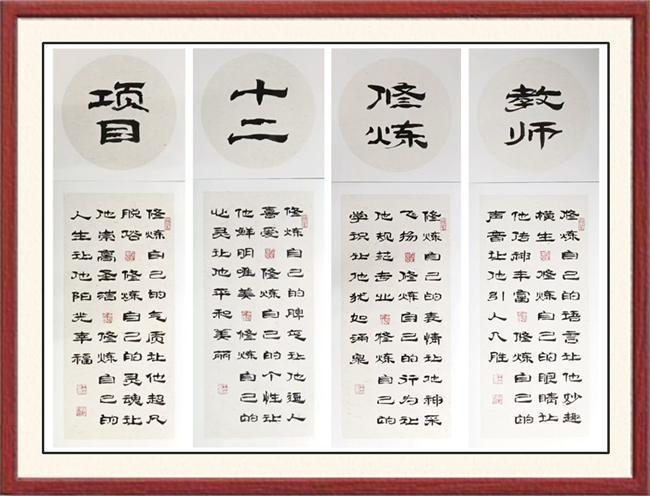 教师
修炼自己的语言让他妙趣
横生 修炼自己的眼睛让
他传神丰富 修炼自己的
声音让他引人入胜
修炼
修炼自己的表情让他神采
飞扬 修炼自己的行为让
他规范专业 修炼自己的
学识让他犹如涌泉
十二
修炼自己的脾气让他逗人
喜爱 修炼自己的个性让
他鲜明唯美 修炼自己的
心灵让他平和美丽
项目
修炼自己的气质让他超凡
脱俗 修炼自己的灵魂让
他崇高圣洁 修炼自己的
人生让他阳光幸福